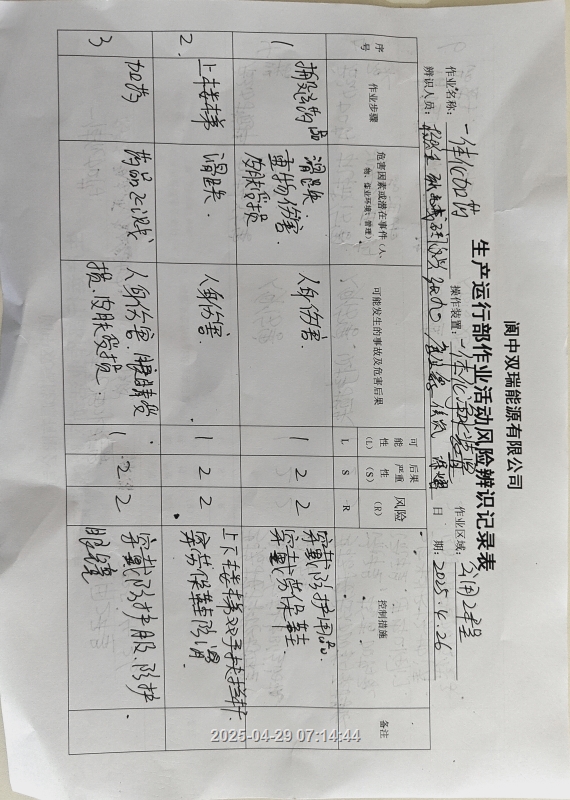 阆中双瑞能源有限公司
生产运行部作业活动风险辨识记录表
作业名称：一体化加药 操作装置：一体化净水装置 作业区域：公用工程
辨识人员： 日期：2025.4.26
序号 作业步骤 危害因素或潜在事件（人、物、作业环境、管理） 可能发生的事故及危害后果 可能性（L） 后果严重性（S） 风险（R） 控制措施 备注
L S R
1 搬运药品 滑跌.重物伤害.皮肤受损 人身伤害. 1 2 2 穿戴防护用品.穿戴劳保鞋
2. 上楼梯 滑跌. 人身伤害. 1 2 2 上下楼梯双手扶栏杆.穿劳保鞋防滑
3 加药 药品飞溅 人身伤害 眼睛受损.皮肤受损. 1 2 2 穿戴防护服.防护眼镜
2025-04-29 07:14:44